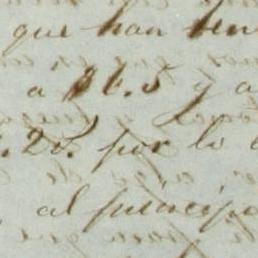 que han ten
a $6.5 y a
.25. por lo
al principio